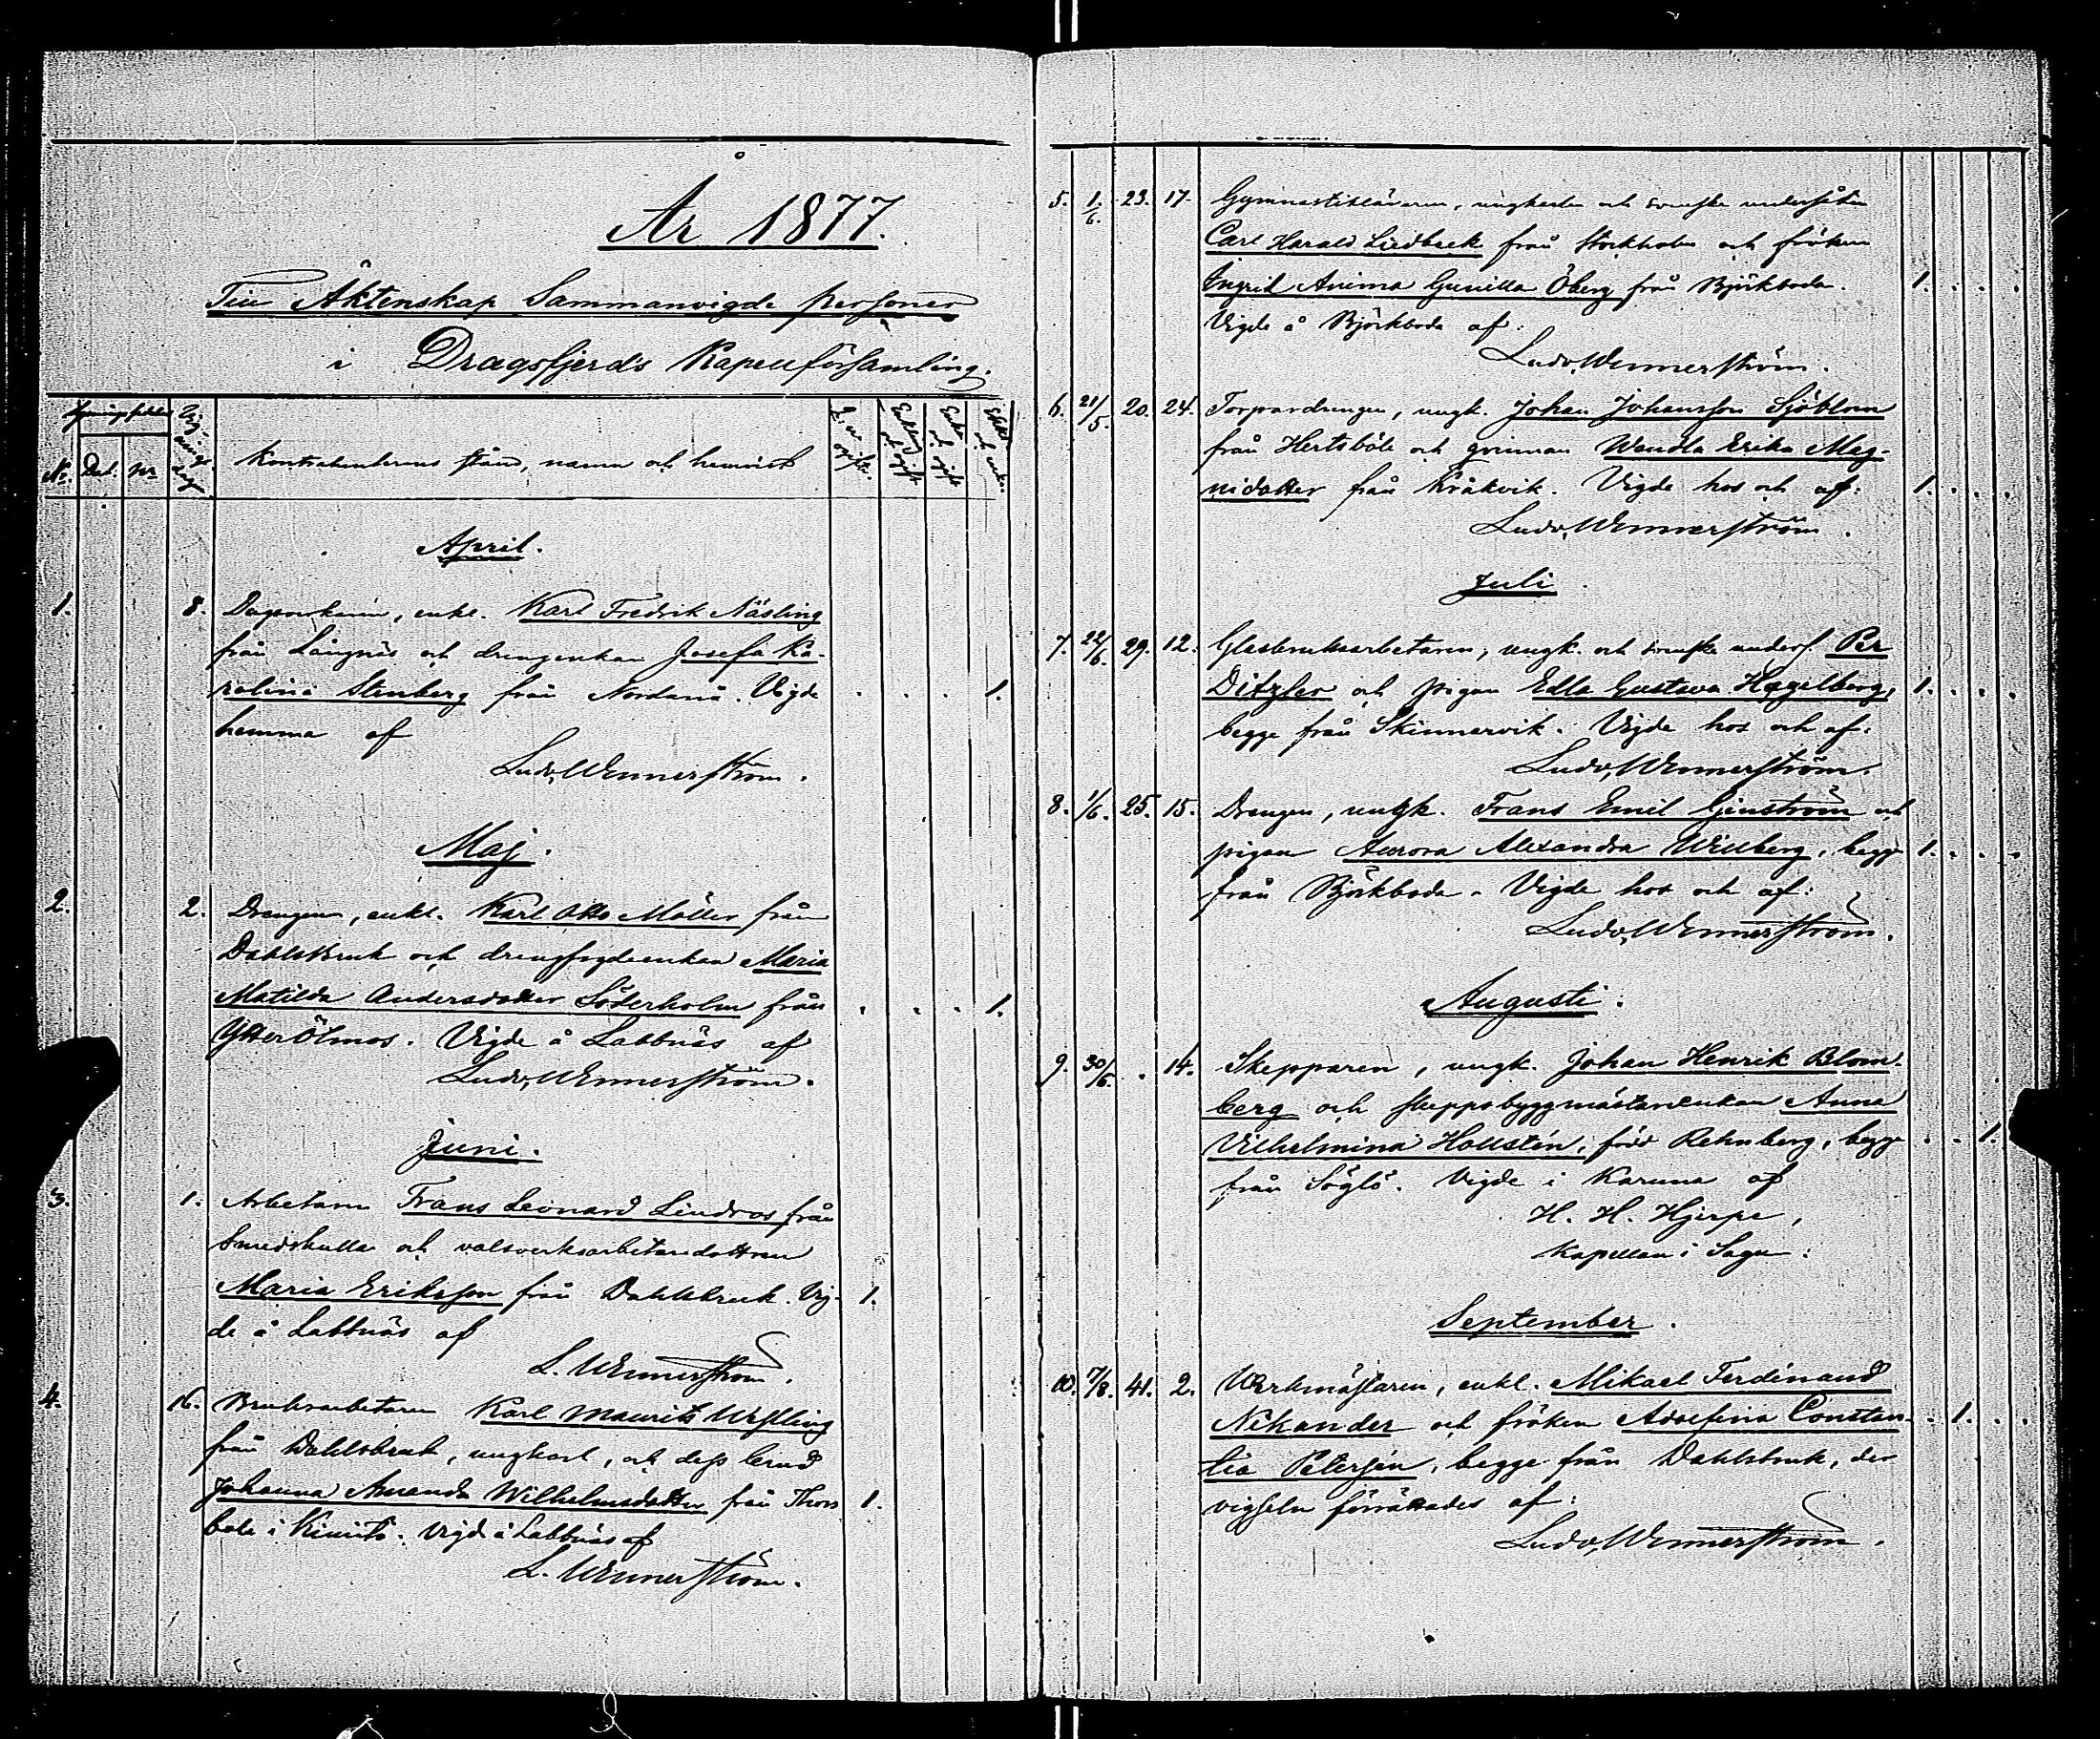 År 1877.
Till Äktenskap Sammanvigde personer
i Dragsfjerds Kapellförsamling.
No. Dat. nr
Kontrahenternas stånd, namn och hemvist
April.
1. 8. enkl. Karl Fredrik Näsling
från Långnäs och drengenkan Josefa Ka-
rolina Stenberg från Nordanå. Vigde . . . 1.
hemma af
Ludv. Wennerström.
Maj.
2. 2. Drengen, enkl. Karl Otto Möller från
Dahlsbruk och Maria
Matilda Andersdotter Söderholm från . . . 1.
Ytter Ölmos. Vigde å Labbnäs af
Ludv. Wennerström.
Juni.
3. 1. Arbetaren Frans Leonard Lindros från
Smedskulla och valsverksarbetaredottren
Maria Eriksson från Dahlsbruk. Vig- 1.
de å Labbnäs af
L. Wennerström.
4. 16. Bruksarbetaren Karl Maurits Westling
från Dahlsbruk, ungkarl, och dess brud
Johanna Amanda Wilhelmsdotter från Thors 1.
bole i Kimito. Vigd å Labbnäs af
L. Wennerström.
5. 1/6. 23. 17. Gymnastikläraren, ungkarlen och svenske undersåten
Carl Harald Liedbeck från Stockholm och fröken
Ingrid Anima Gunilla Öberg från Björkboda. 1. . . .
Vigde å Björkboda af:
Ludv. Wennerström.
6. 21/5. 20. 24. Torpardrengen, ungk. Johan Johansson Sjöblom
från Hertsböle och qvinnan Wendla Erika Mag-
nidotter från Kråkvik. Vigde hos och af: 1. . . .
Ludv. Wennerström.
Juli.
7. 22/6. 29. 12. Glasbruksarbetaren, ungk. och svenske unders. Per
Ditzler och pigan Edla Gustava Hagelberg, 1. . . .
begge från Skinnarvik. Vigde hos och af:
Ludv. Wennerström.
8. 1/6. 25. 15. Drengen, ungk. Frans Emil Genström och
pigan Aurora Alexandra Willberg, begge 1. . . .
från Björkboda. Vigde hos och af:
Ludv. Wennerström.
Augusti.
9. 30/6. . 14. Skepparen, ungk. Johan Henrik Blom-
berg och skeppsbyggmästareenkan Anna
Vilhelmina Hollstén, född Rehnberg, begge . . 1.
från Söglö. Vigde i Karuna af
H. H. Hjerpe,
Kapellan i Sagu.
September.
10. 17/8. 41. 2. Werkmästaren, enkl. Mikael Ferdinand
Nikander och fröken Adolfina Constan- . 1. . .
tia Petersén, begge från Dahlsbruk, der
vigseln förrättades af:
Ludv. Wennerström.